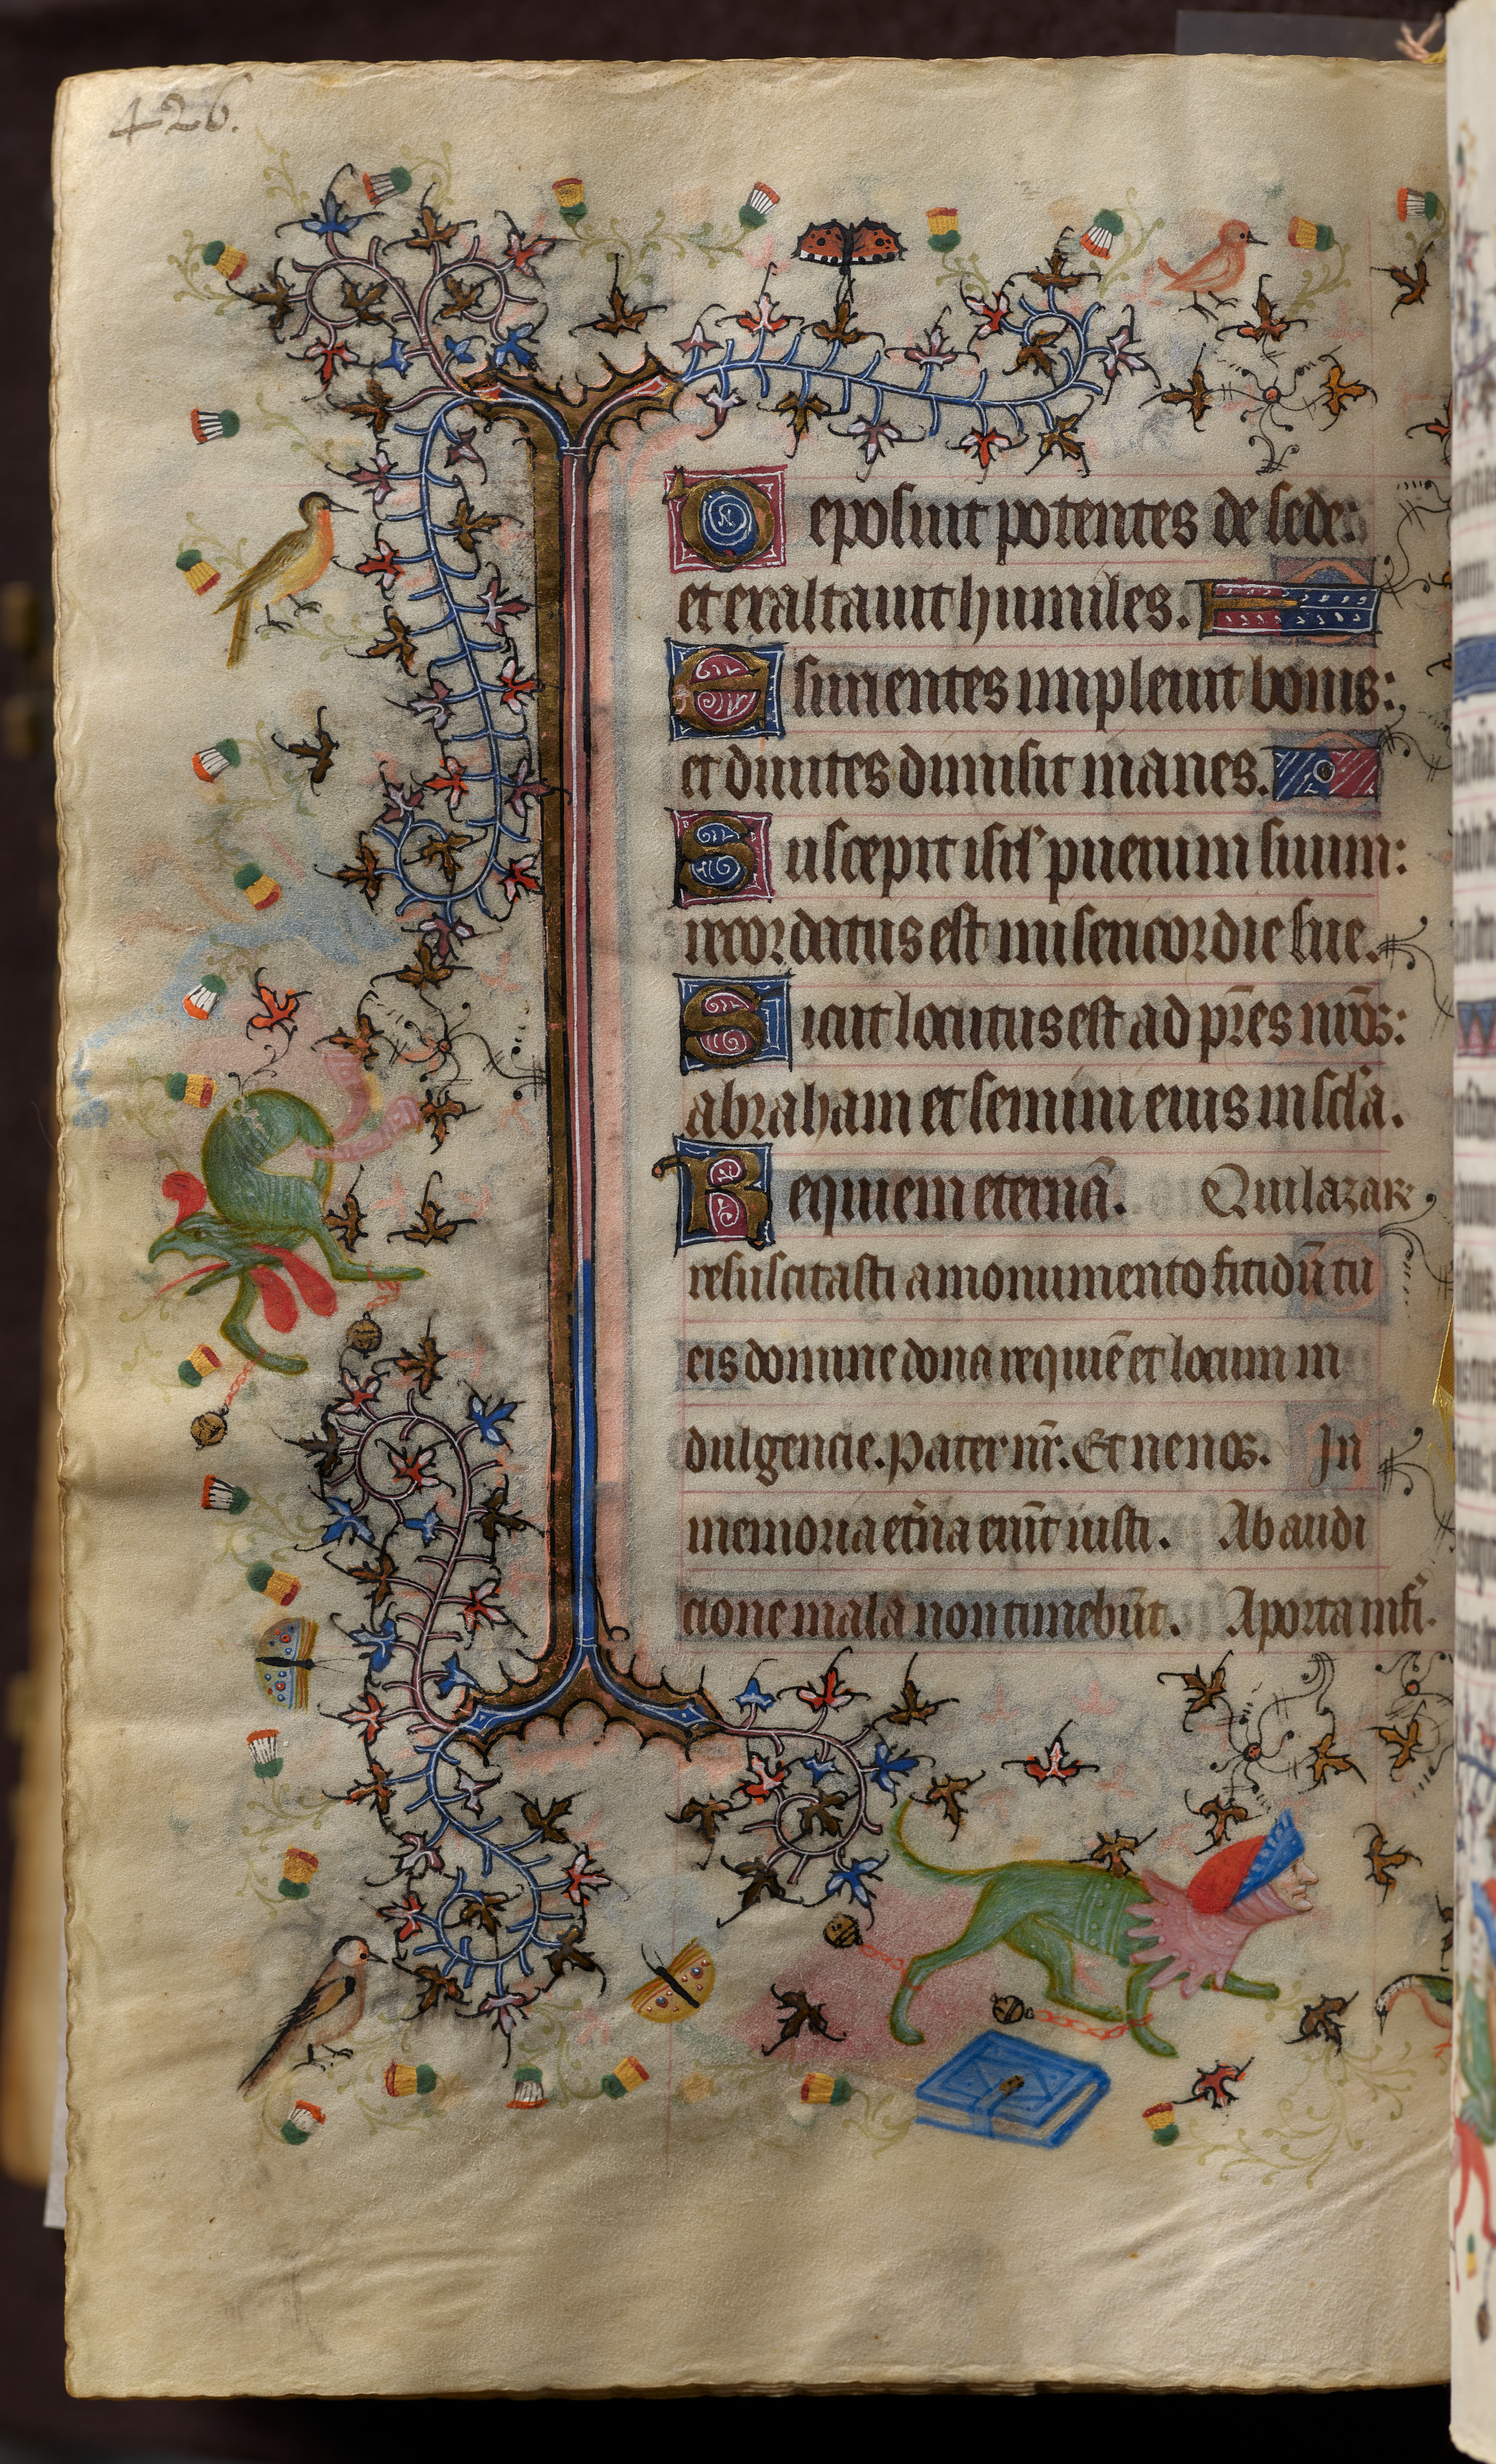 426.
Deposuit potentes de sede:
et exaltauit humiles.
Esurientes impleuit bonis:
et diuites dimisit inanes.
Suscepit isrl' puerum suum:
recordatus est misericordie sue.
Sicut locutus est ad p̄res nr̄os:
abraham et semini eius in scl'a.
Requiem eternā. Qui lazare
resuscitasti a monumento fitidū tu
eis domine dona requiē et locum in
dulgencie. Pater nr̄. Et ne nos. In
memoria et̄na erūt iusti. Ab audi
cione mala non timebūt. A porta infī.